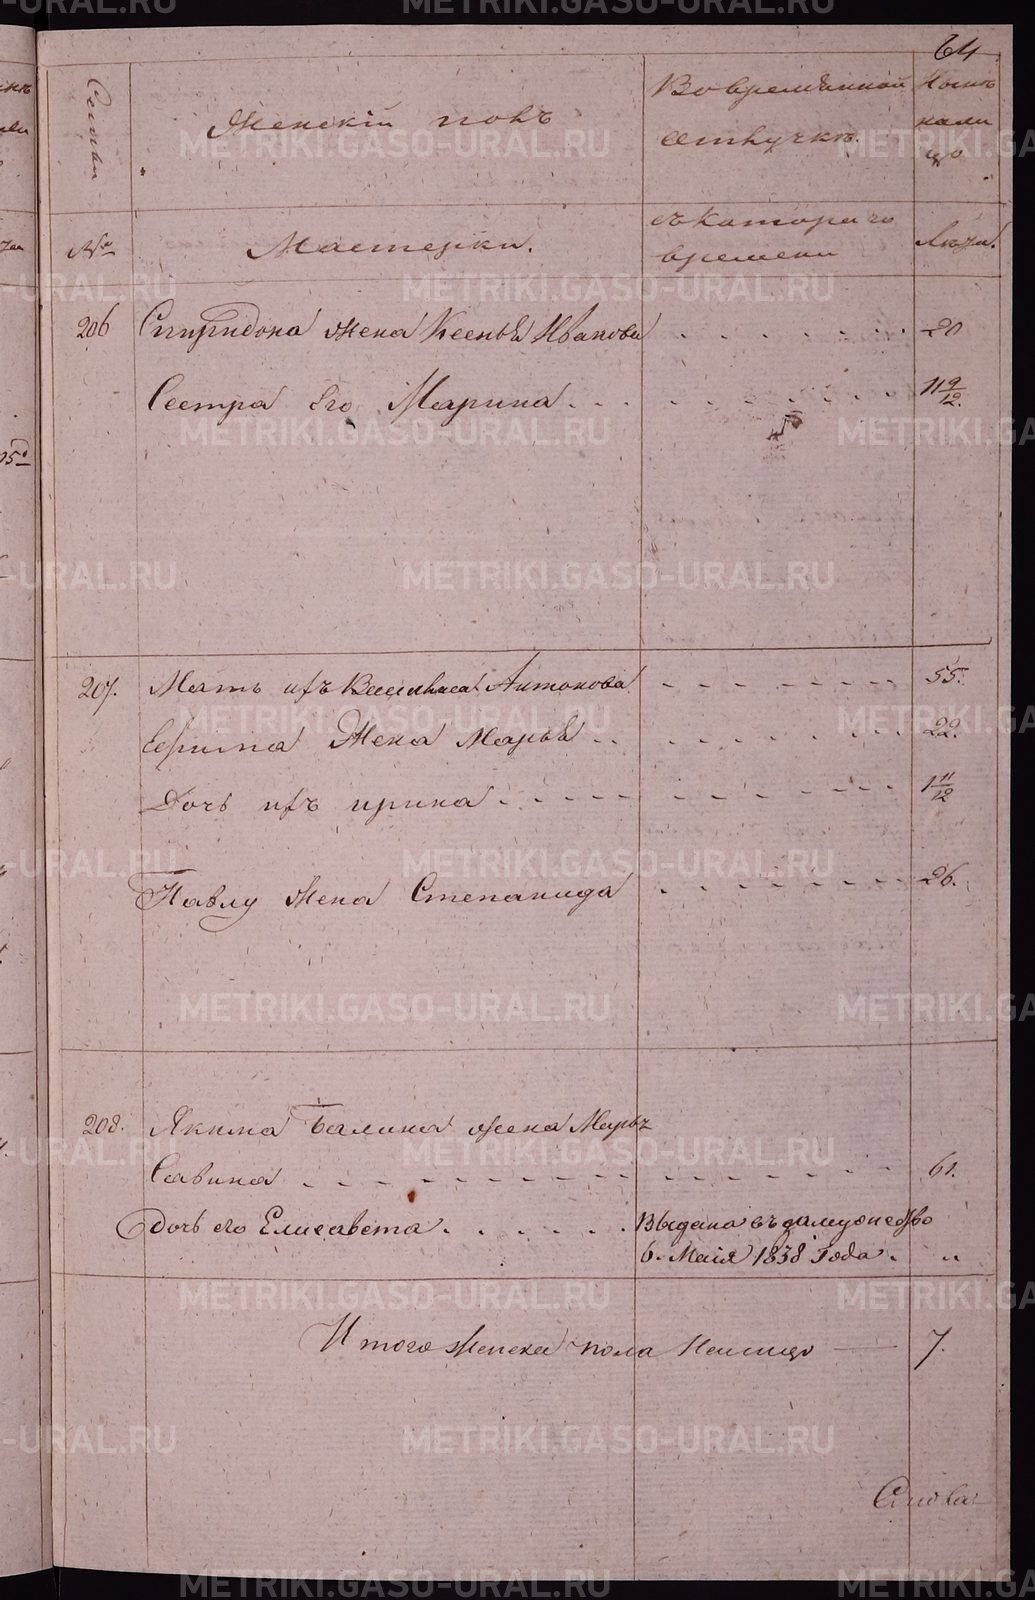 64
Семьи
Женскій полъ
Во временной
отлучкѣ.
Нынѣ
нали
цо
№
Мастерки.
съ котораго
времени
Лѣта.
206 Спиридона жена Ксенья Иванова . . . . . . 20
Сестра Его Марина . . . . . . . . 11 9/12.
207. Мать ихъ Василиса Антонова - - - - - - 55.
Ефима Жена Марья . . - - - - - - 22.
Дочь ихъ ирина - - - - - - - - 1 11/12
Павлу Жена Степанида - - - - - - 26.
208. Якима Балина жена Марья
Савина - - - - - - - - 61.
Дочь его Елисавета . . . . . . Выдана въ замужество
6. Маія 1838 Года. „
Итого женска пола Налицо — 7.
METRIKI.GASO-URAL.RU